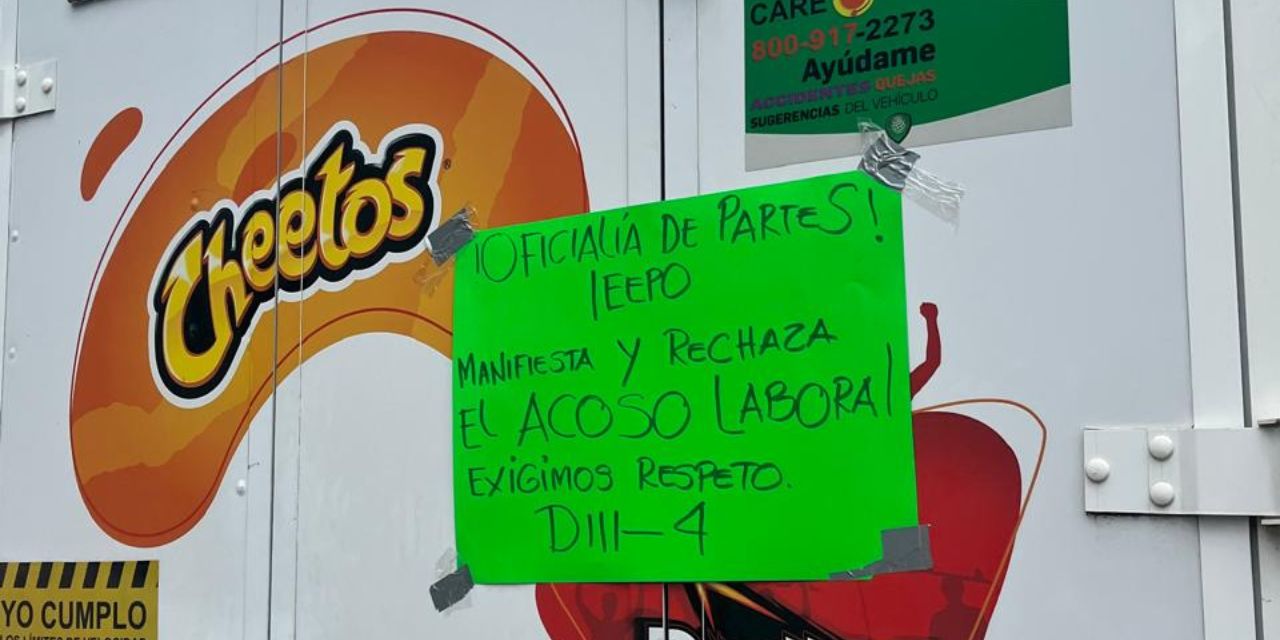 Cheetos
CARE
800-917-2273
Ayúdame
ACCIDENTES QUEJAS
SUGERENCIAS DEL VEHÍCULO
¡OFICIALÍA DE PARTES!
IEEPO
MANIFIESTA Y RECHAZA
EL ACOSO LABORAL
EXIGIMOS RESPETO.
DIII-4
YO CUMPLO
LOS LÍMITES DE VELOCIDAD